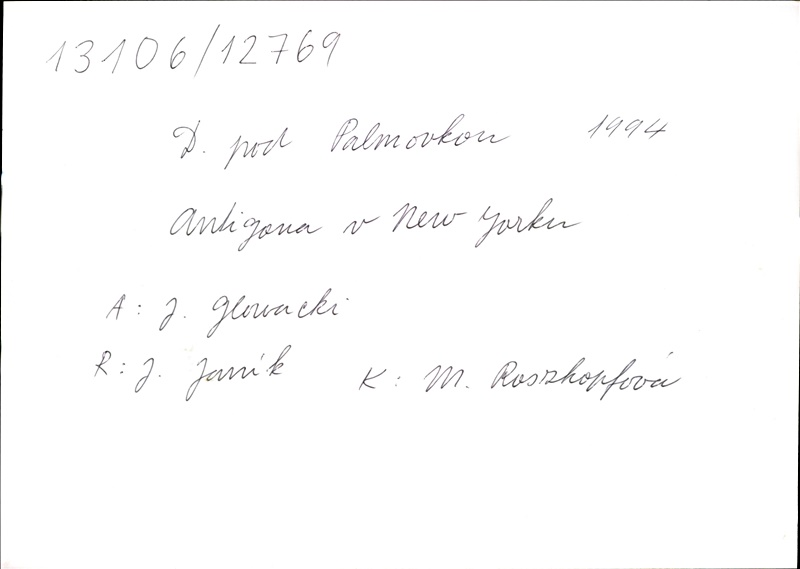 13106/12769
D. pod Palmovkou 1994
Antigona v New Yorku
A: J. Glowacki
R: J. Janík K: M. Roszkopfová